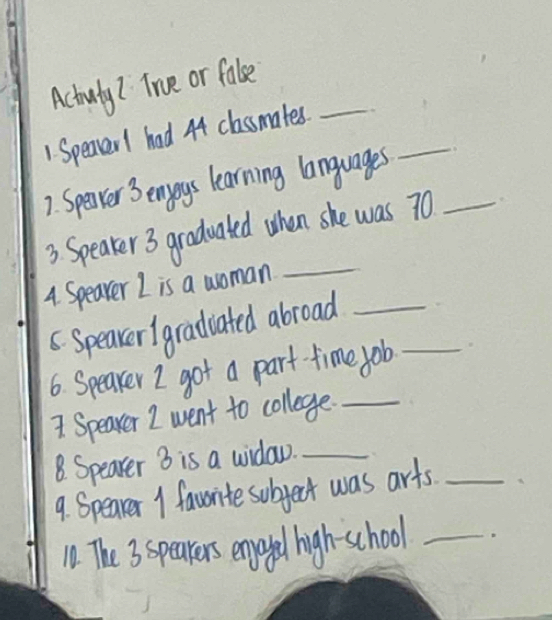 Activity 2: True or false
1. Speaker 1 had 44 classmates. ____
2. Speaker 3 enjoys learning languages. ____
3. Speaker 3 graduated when she was 70 ____
4. Speaker 2 is a woman ____
5. Speaker 1 graduated abroad ____
6. Speaker 2 got a part-time job. ____
7. Speaker 2 went to college. ____
8. Speaker 3 is a widow. ____
9. Speaker 1 favorite subject was arts. ____.
10. The 3 speakers enjoyed high-school ____.